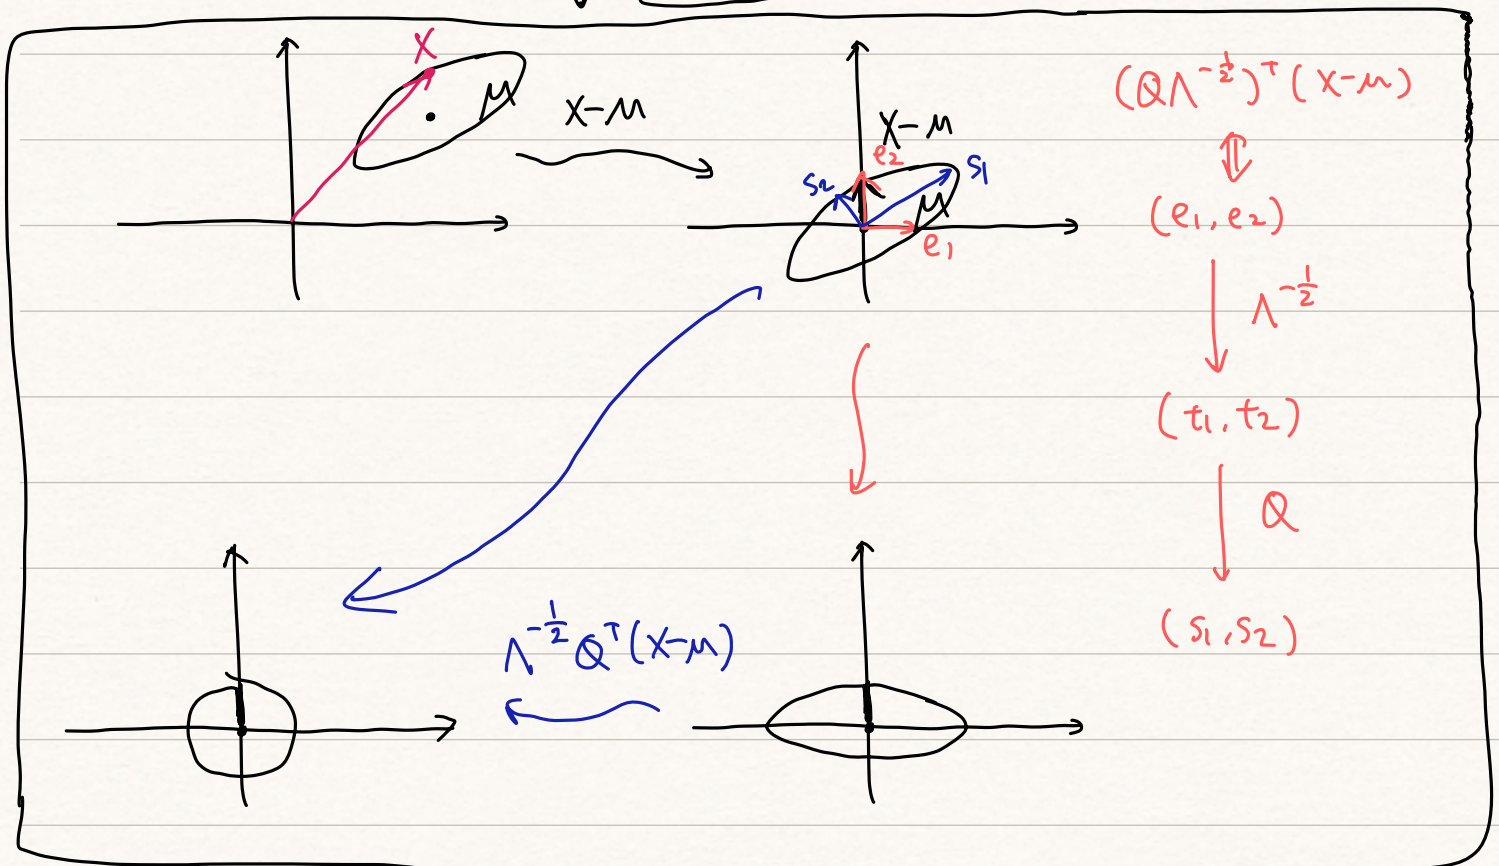 X
μ
X-μ
X-μ
e₂
s₁
s₂
μ
e₁
(QΛ^{-1/2})^T (X-μ)
⇕
(e₁, e₂)
Λ^{-1/2}
(t₁, t₂)
Q
(s₁, s₂)
Λ^{-1/2} Q^T (X-μ)